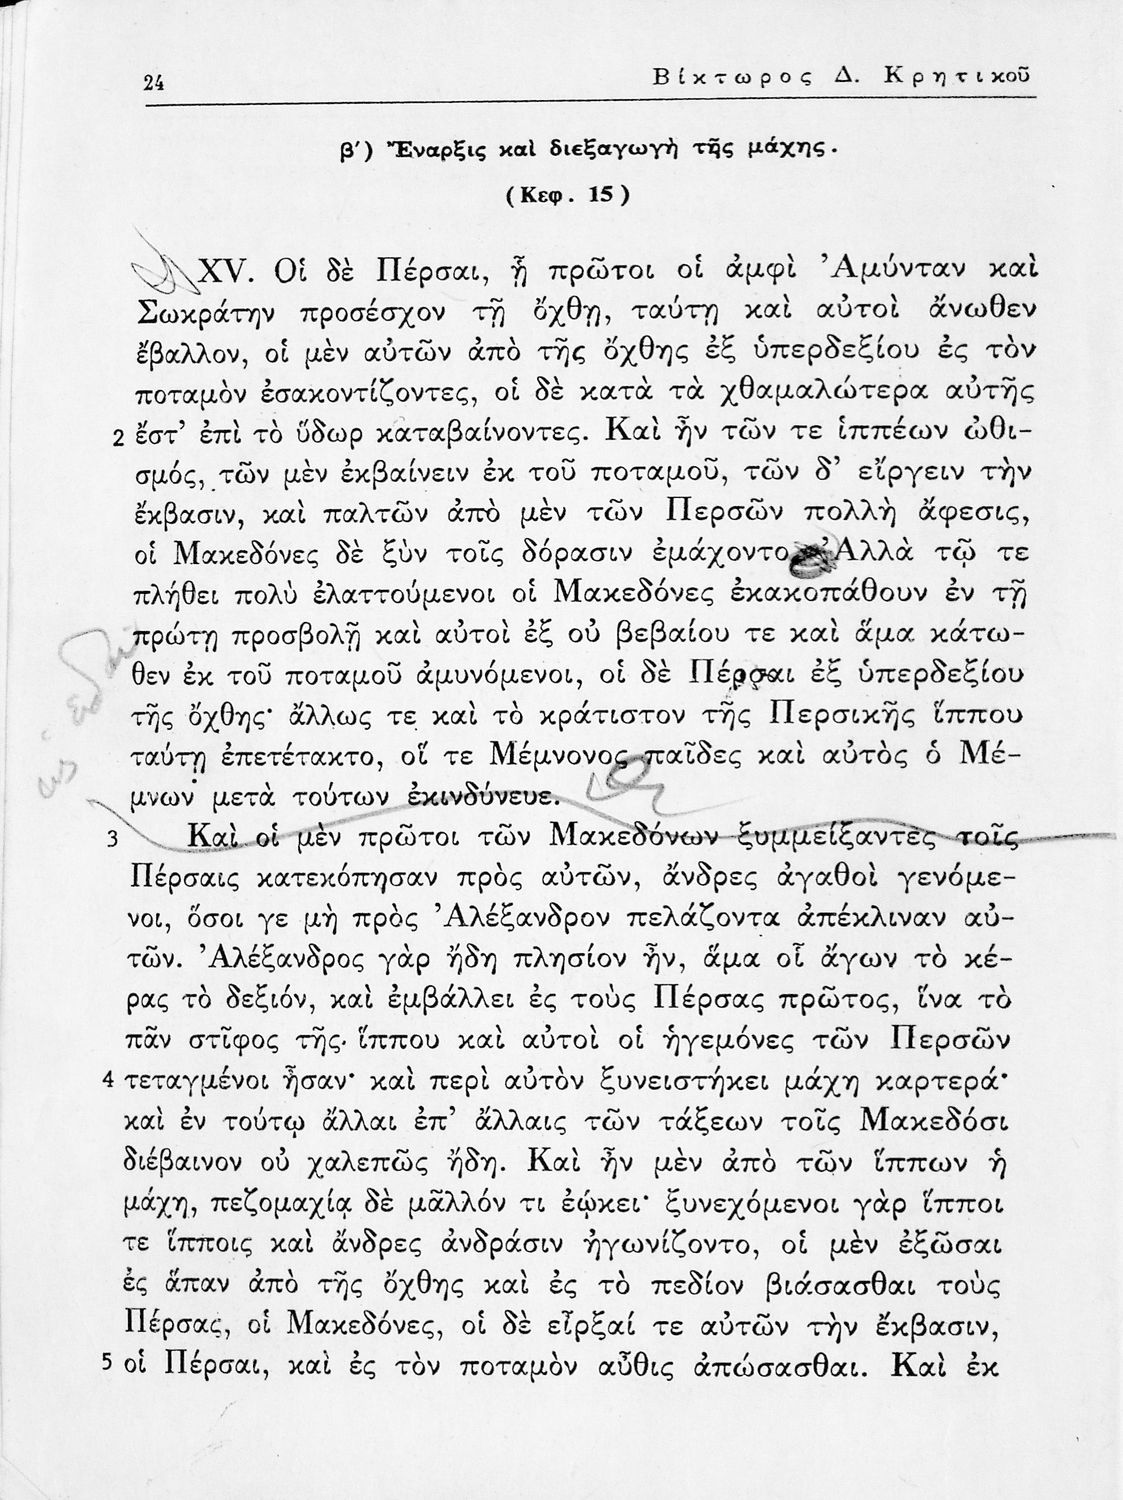 24
Βίκτωρος Δ. Κρητικοῦ
β′) Ἔναρξις καὶ διεξαγωγὴ τῆς μάχης.
(Κεφ. 15)
XV. Οἱ δὲ Πέρσαι, ᾗ πρῶτοι οἱ ἀμφὶ Ἀμύνταν καὶ
Σωκράτην προσέσχον τῇ ὄχθῃ, ταύτῃ καὶ αὐτοὶ ἄνωθεν
ἔβαλλον, οἱ μὲν αὐτῶν ἀπὸ τῆς ὄχθης ἐξ ὑπερδεξίου ἐς τὸν
ποταμὸν ἐσακοντίζοντες, οἱ δὲ κατὰ τὰ χθαμαλώτερα αὐτῆς
2 ἔστ’ ἐπὶ τὸ ὕδωρ καταβαίνοντες. Καὶ ἦν τῶν τε ἱππέων ὠθι-
σμός, τῶν μὲν ἐκβαίνειν ἐκ τοῦ ποταμοῦ, τῶν δ’ εἴργειν τὴν
ἔκβασιν, καὶ παλτῶν ἀπὸ μὲν τῶν Περσῶν πολλὴ ἄφεσις,
οἱ Μακεδόνες δὲ ξὺν τοῖς δόρασιν ἐμάχοντο Ἀλλὰ τῷ τε
πλήθει πολὺ ἐλαττούμενοι οἱ Μακεδόνες ἐκακοπάθουν ἐν τῇ
πρώτῃ προσβολῇ καὶ αὐτοὶ ἐξ οὐ βεβαίου τε καὶ ἅμα κάτω-
θεν ἐκ τοῦ ποταμοῦ ἀμυνόμενοι, οἱ δὲ Πέρσαι ἐξ ὑπερδεξίου
τῆς ὄχθης· ἄλλως τε καὶ τὸ κράτιστον τῆς Περσικῆς ἵππου
ταύτῃ ἐπετέτακτο, οἵ τε Μέμνονος παῖδες καὶ αὐτὸς ὁ Μέ-
μνων μετὰ τούτων ἐκινδύνευε.
3 Καὶ οἱ μὲν πρῶτοι τῶν Μακεδόνων ξυμμείξαντες τοῖς
Πέρσαις κατεκόπησαν πρὸς αὐτῶν, ἄνδρες ἀγαθοὶ γενόμε-
νοι, ὅσοι γε μὴ πρὸς Ἀλέξανδρον πελάζοντα ἀπέκλιναν αὐ-
τῶν. Ἀλέξανδρος γὰρ ἤδη πλησίον ἦν, ἅμα οἷ ἄγων τὸ κέ-
ρας τὸ δεξιόν, καὶ ἐμβάλλει ἐς τοὺς Πέρσας πρῶτος, ἵνα τὸ
πᾶν στῖφος τῆς ἵππου καὶ αὐτοὶ οἱ ἡγεμόνες τῶν Περσῶν
4 τεταγμένοι ἦσαν· καὶ περὶ αὐτὸν ξυνειστήκει μάχη καρτερά·
καὶ ἐν τούτῳ ἄλλαι ἐπ’ ἄλλαις τῶν τάξεων τοῖς Μακεδόσι
διέβαινον οὐ χαλεπῶς ἤδη. Καὶ ἦν μὲν ἀπὸ τῶν ἵππων ἡ
μάχη, πεζομαχίᾳ δὲ μᾶλλόν τι ἐῴκει· ξυνεχόμενοι γὰρ ἵπποι
τε ἵπποις καὶ ἄνδρες ἀνδράσιν ἠγωνίζοντο, οἱ μὲν ἐξῶσαι
ἐς ἅπαν ἀπὸ τῆς ὄχθης καὶ ἐς τὸ πεδίον βιάσασθαι τοὺς
Πέρσας, οἱ Μακεδόνες, οἱ δὲ εἶρξαί τε αὐτῶν τὴν ἔκβασιν,
5 οἱ Πέρσαι, καὶ ἐς τὸν ποταμὸν αὖθις ἀπώσασθαι. Καὶ ἐκ